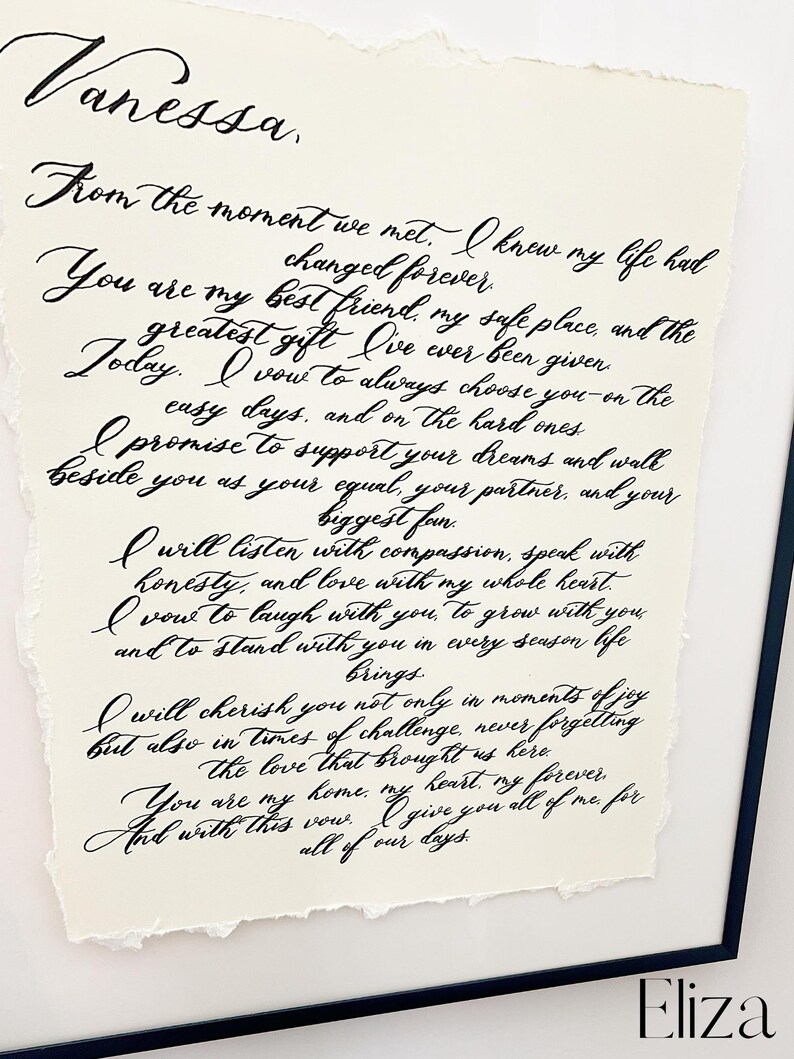 Vanessa,
From the moment we met, I knew my life had
changed forever.
You are my best friend, my safe place, and the
greatest gift I've ever been given.
Today, I vow to always choose you—on the
easy days, and on the hard ones.
I promise to support your dreams and walk
beside you as your equal, your partner, and your
biggest fan.
I will listen with compassion, speak with
honesty, and love with my whole heart.
I vow to laugh with you, to grow with you,
and to stand with you in every season life
brings.
I will cherish you not only in moments of joy
but also in times of challenge, never forgetting
the love that brought us here.
You are my home, my heart, my forever.
And with this vow, I give you all of me, for
all of our days.
Eliza